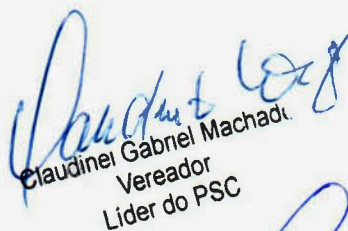 Claudinei Gabriel Machado
Vereador
Líder do PSC